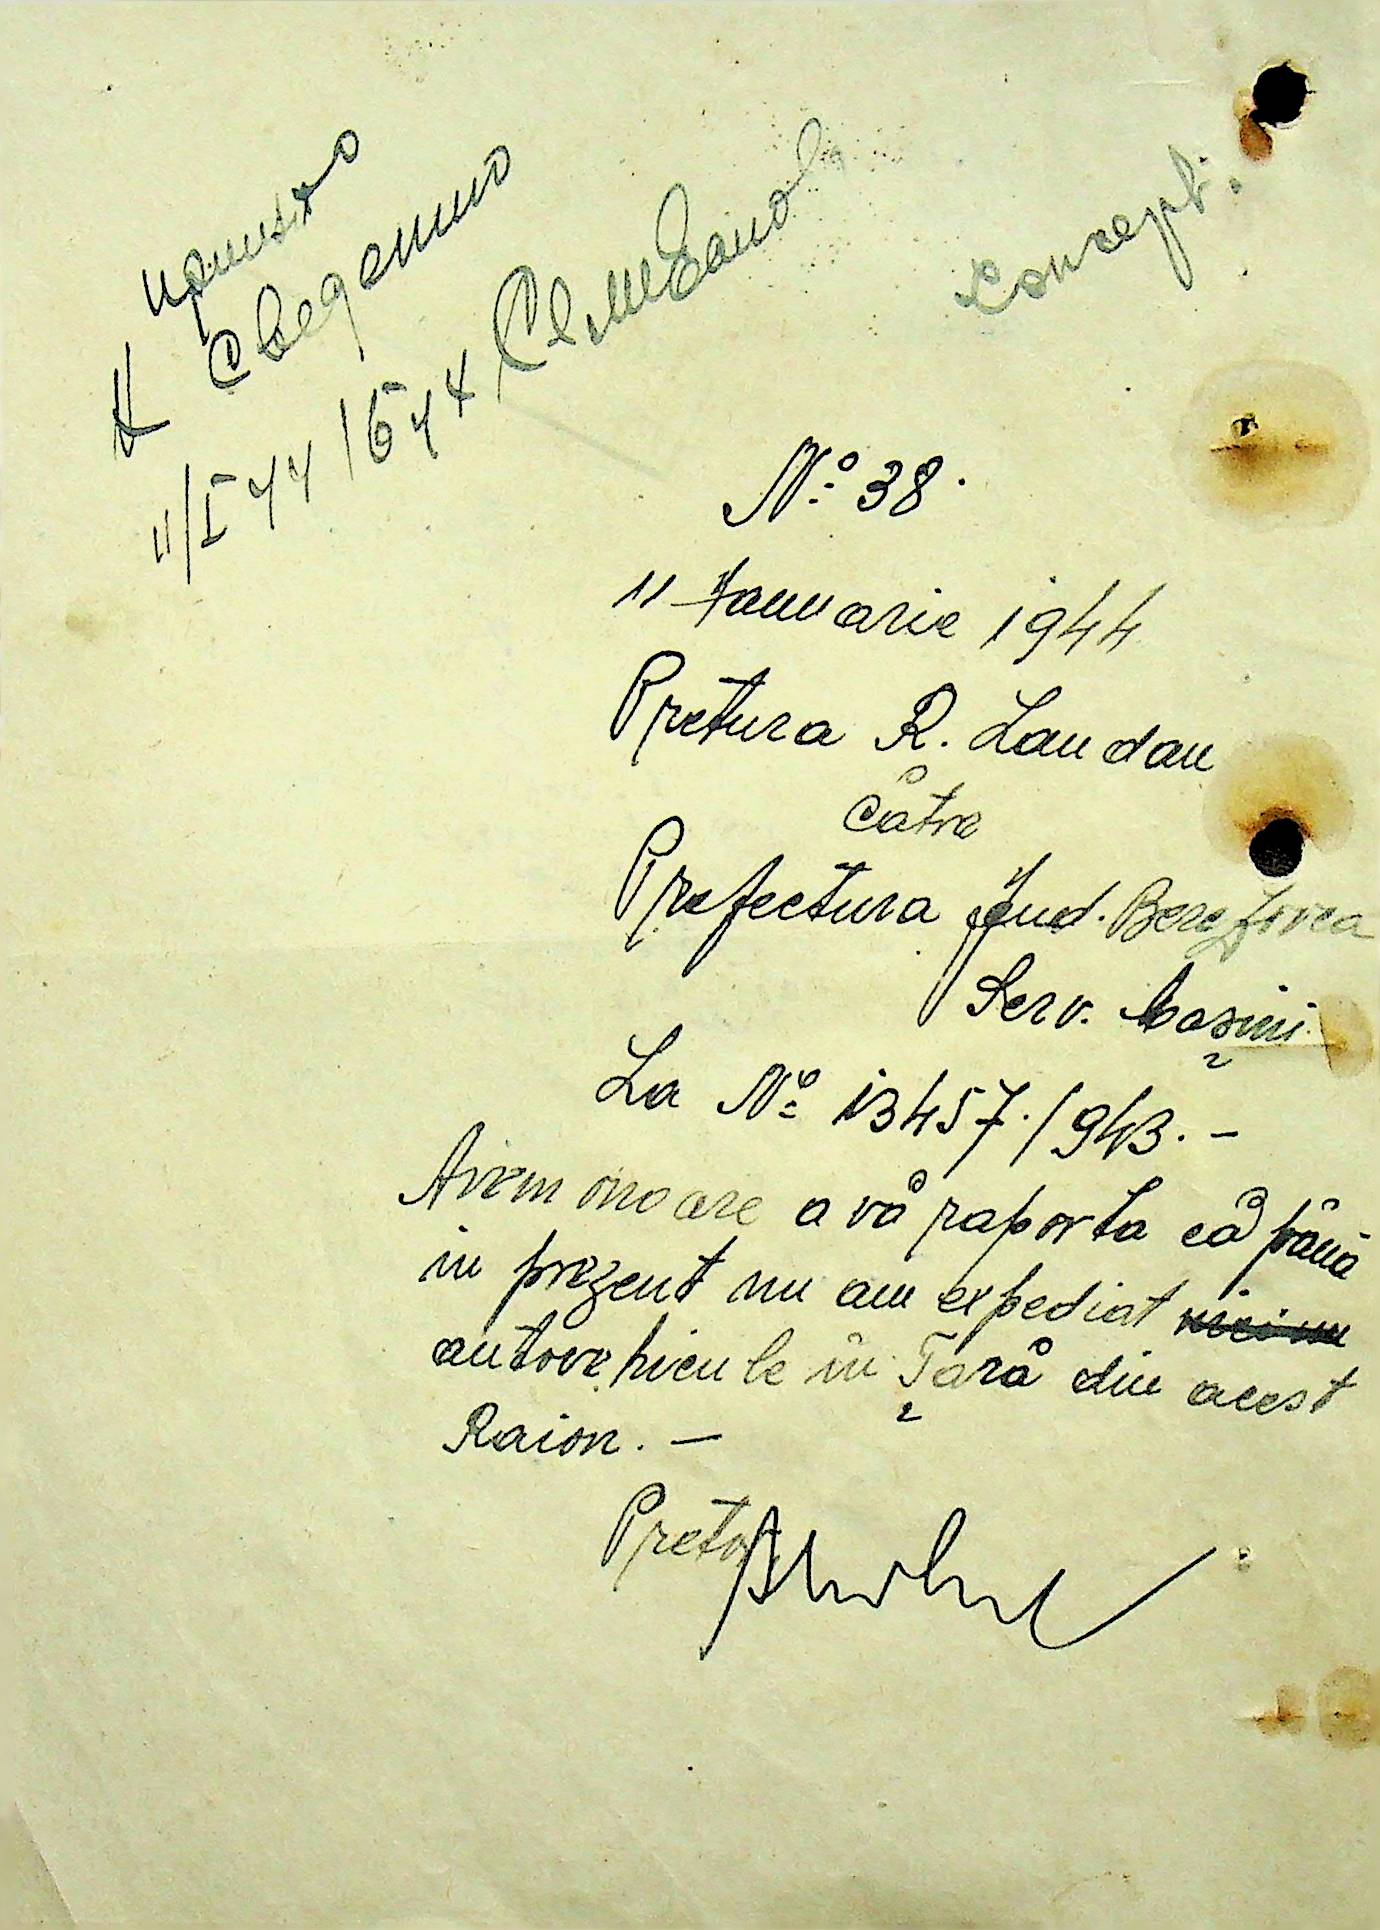 принято
К сведению
11/I 44 Семёанов
Concept.
Nº 38.
11 Ianuarie 1944
Pretura R. Landau
Către
Prefectura Jud. Berezovca
Serv. Mașini.
La Nº 13457./943. –
Avem onoare a vă raporta că până
in prezent nu am expediat nici un
autovehicule în Țară din acest
Raion. –
Pretor